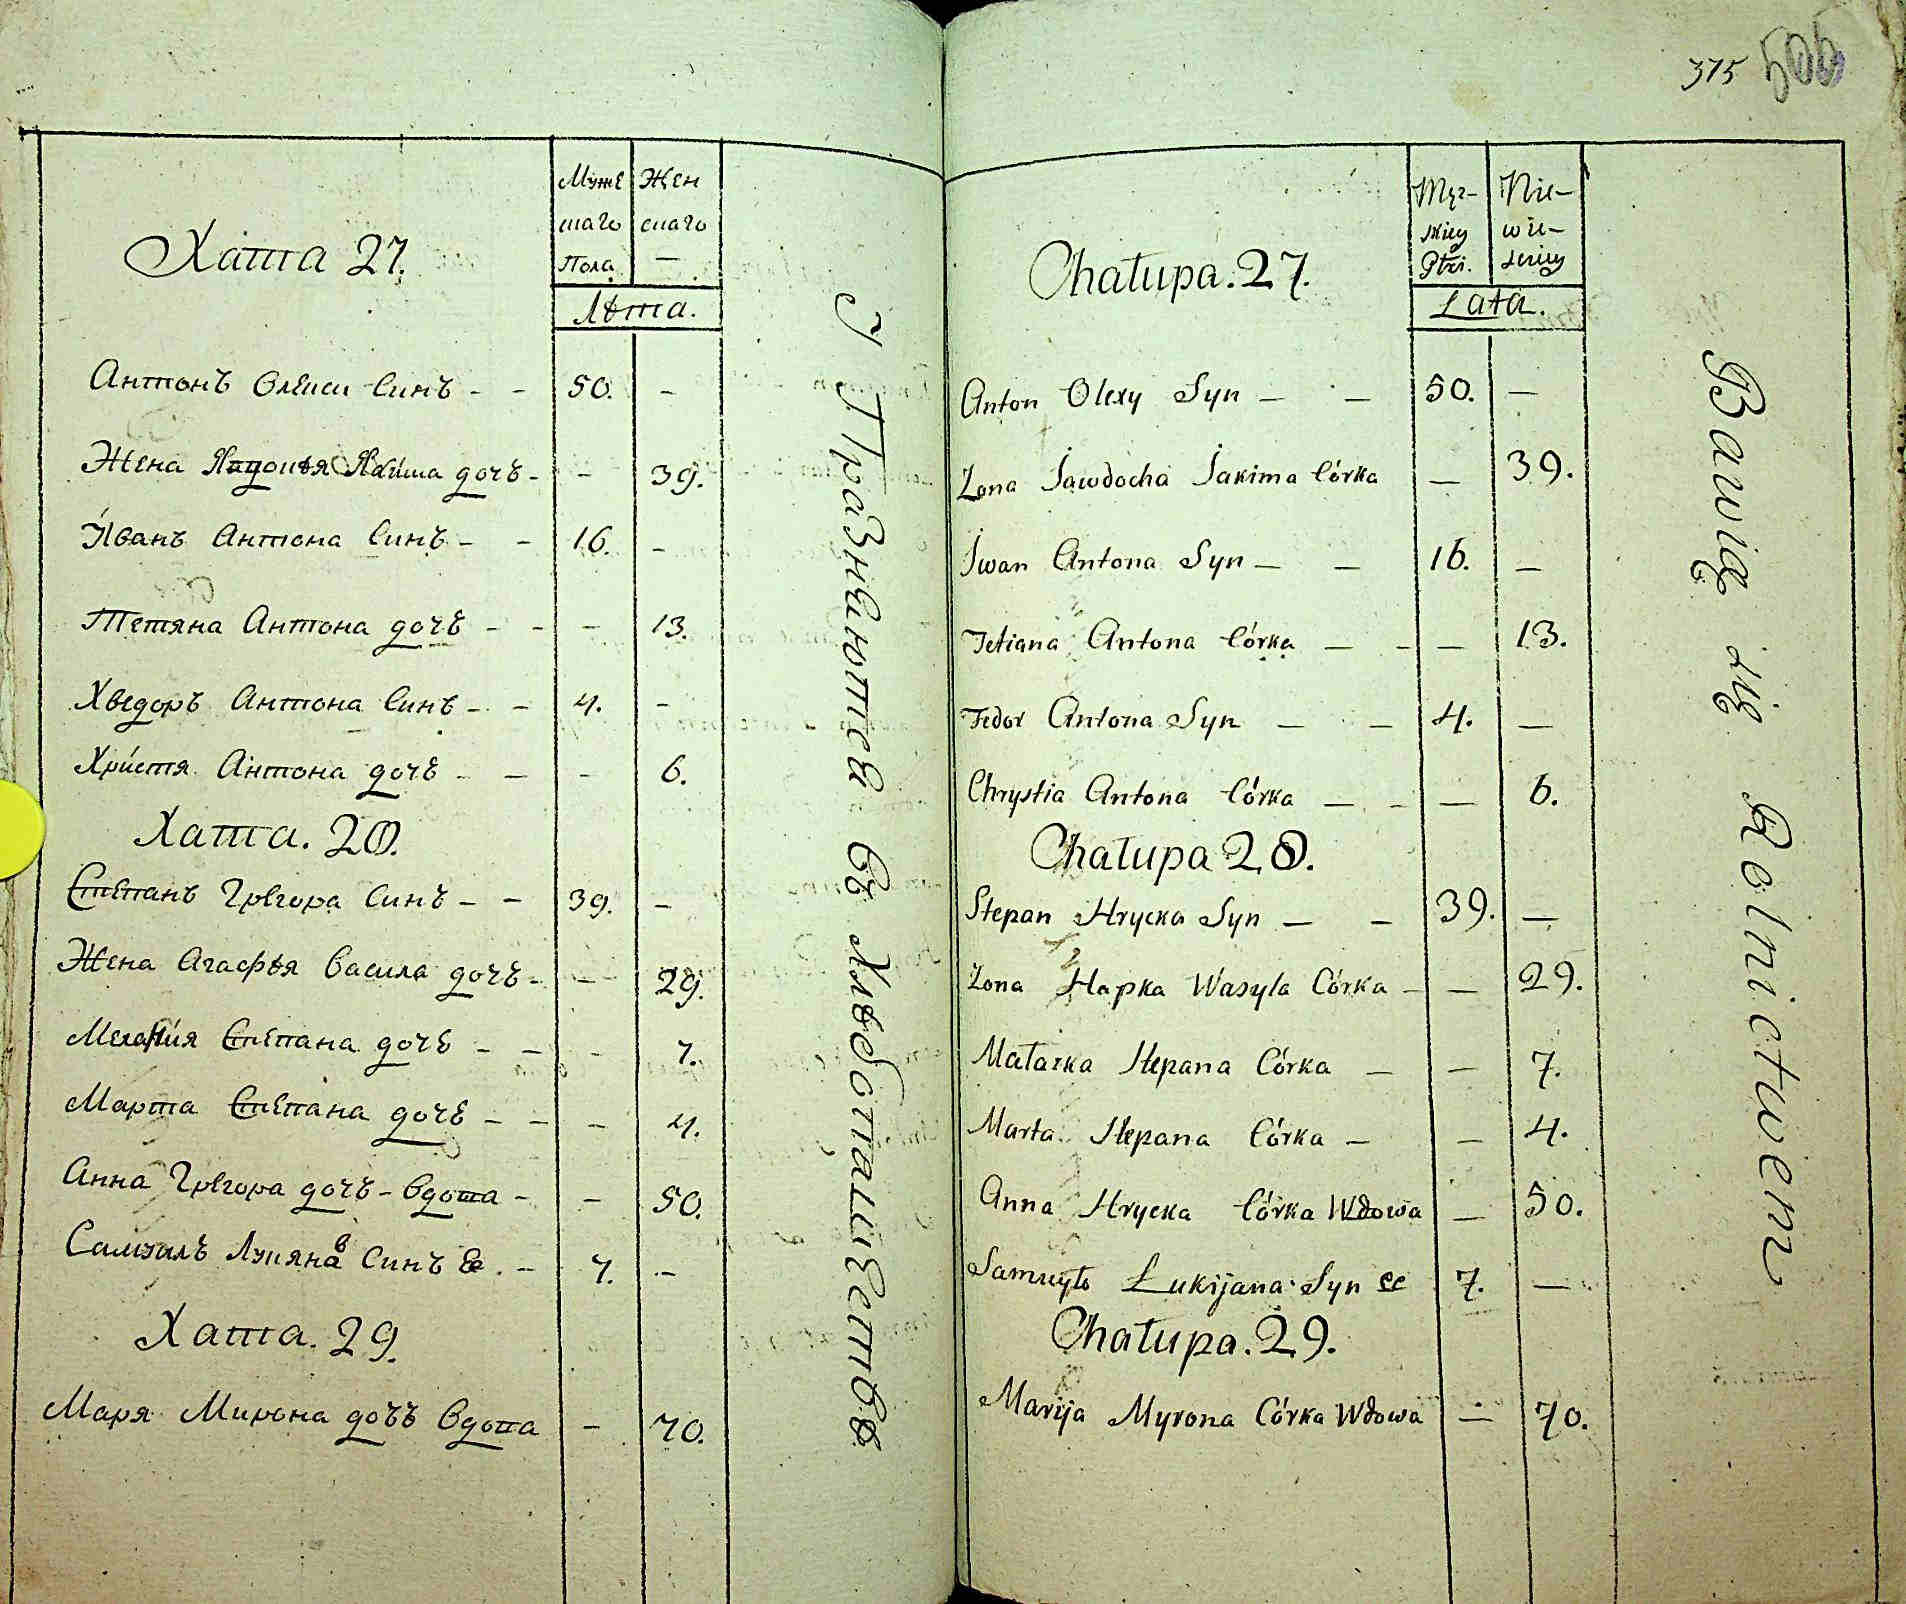 Хата 27.
Муже Жен
скаго скаго
Пола —
Лѣта.
Антонъ Олекси Синъ - - 50. -
Жена Явдокѣя Якима дочъ - - 39.
Іванъ Антона Синъ - - 16. -
Тетяна Антона дочь - - - 13.
Хведоръ Антона Синъ - - 4. -
Христя Антона дочь - - - 6.
Хата. 28.
Степанъ Грегора Синъ - - 39. -
Жена Агафѣя Васила дочъ - - 29.
Меланія Степана дочь - - - 7.
Марта Степана дочь - - - 4.
Анна Грегора дочъ - Вдова - - 50.
Самуилъ Лукяна Синъ Ее. - 7. -
Хата. 29.
Маря Мирона дочъ Вдова - 70.
Упражняются въ Хлѣбопашествѣ
375 506
Chałupa. 27.
Męz- Nie-
skiey wie-
Płci. sciey
Lata.
Anton Olexy Syn — — 50. —
Zona Jawdocha Jakima Córka — 39.
Jwan Antona Syn — — 16. —
Tetiana Antona Córka — - — 13.
Fedor Antona Syn — — 4. —
Chrystia Antona Córka — - — 6.
Chałupa 28.
Stepan Hrycka Syn — — 39. —
Zona Hapka Wasyla Córka - — 29.
Małaszka Stepana Córka — — 7.
Marta Stepana Córka — — 4.
Anna Hrycka Córka Wdowa — 50.
Samuyło Łukijana Syn ee 7. —
Chałupa. 29.
Marija Myrona Córka Wdowa — 70.
Bawią się Rolnictwem